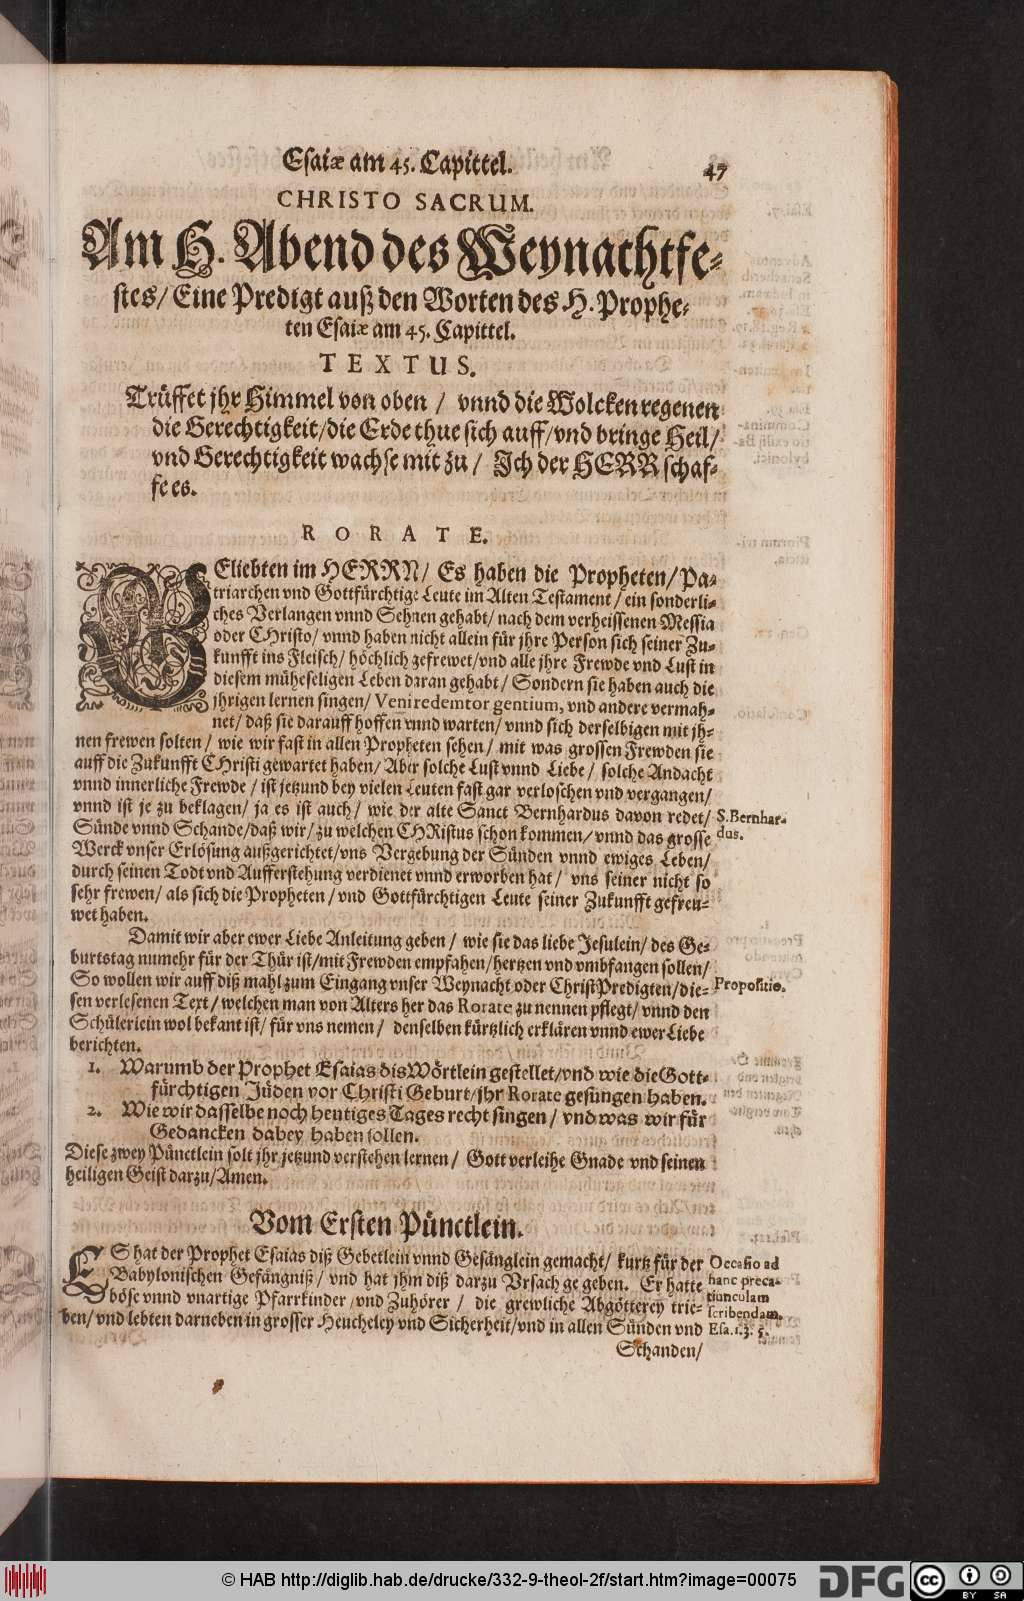 Esaiæ am 45. Capittel. 47
CHRISTO SACRUM.
Am H. Abend des Weynachtfe-
stes/ Eine Predigt auß den Worten des H. Prophe-
ten Esaiæ am 45. Capittel.
TEXTUS.
Trüffet jhr Himmel von oben / vnnd die Wolcken regenen
die Gerechtigkeit/die Erde thue sich auff/vnd bringe Heil/
vnd Gerechtigkeit wachse mit zu / Ich der HERR schaf-
fe es.
RORATE.
GEliebten im HERRN/ Es haben die Propheten/ Pa-
triarchen vnd Gottfürchtige Leute im Alten Testament / ein sonderli-
ches Verlangen vnnd Sehnen gehabt/ nach dem verheissenen Messia
oder CHristo/ vnnd haben nicht allein für jhre Person sich seiner Zu-
kunfft ins Fleisch/ höchlich gefrewet/vnd alle jhre Frewde vnd Lust in
diesem müheseligen Leben daran gehabt/ Sondern sie haben auch die
jhrigen lernen singen/ Veni redemtor gentium, vnd andere vermah-
net/ daß sie darauff hoffen vnnd warten/ vnnd sich derselbigen mit jh-
nen frewen solten / wie wir fast in allen Propheten sehen/ mit was grossen Frewden sie
auff die Zukunfft CHristi gewartet haben/ Aber solche Lust vnnd Liebe / solche Andacht
vnnd innerliche Frewde / ist jetzund bey vielen Leuten fast gar verloschen vnd vergangen/
vnnd ist je zu beklagen/ ja es ist auch / wie der alte Sanct Bernhardus davon redet/
S. Bernhar-
dus.
Sünde vnnd Schande/daß wir/ zu welchen CHRistus schon kommen/ vnnd das grosse
Werck vnser Erlösung außgerichtet/vns Vergebung der Sünden vnnd ewiges Leben/
durch seinen Todt vnd Aufferstehung verdienet vnnd erworben hat / vns seiner nicht so
sehr frewen/ als sich die Propheten / vnd Gottfürchtigen Leute seiner Zukunfft gefrew-
wet haben.
Damit wir aber ewer Liebe Anleitung geben / wie sie das liebe Jesulein/ des Ge-
burtstag numehr für der Thür ist/mit Frewden empfahen/hertzen vnd vmbfangen sollen/
So wollen wir auff diß mahl zum Eingang vnser Weynacht oder ChristPredigten/die-
Propositio.
sen verlesenen Text / welchen man von Alters her das Rorate zu nennen pflegt/ vnnd den
Schülerlein wol bekant ist/ für vns nemen / denselben kürtzlich erklären vnnd ewer Liebe
berichten.
1. Warumb der Prophet Esaias dis Wörtlein gestellet/vnd wie die Gott-
fürchtigen Jüden vor Christi Geburt/jhr Rorate gesungen haben.
2. Wie wir dasselbe noch heutiges Tages recht singen / vnd was wir für
Gedancken dabey haben sollen.
Diese zwey Pünctlein solt jhr jetzund verstehen lernen / Gott verleihe Gnade vnd seinen
heiligen Geist darzu/Amen.
Vom Ersten Pünctlein.
ES hat der Prophet Esaias diß Gebetlein vnnd Gesänglein gemacht/ kurtz für der
Babylonischen Gefängniß / vnd hat jhm diß darzu Vrsach gegeben. Er hatte
böse vnnd vnartige Pfarrkinder / vnd Zuhörer / die grewliche Abgötterey trie-
ben/ vnd lebten darneben in grosser Heucheley vnd Sicherheit/vnd in allen Sünden vnd
Occasio ad
hanc preca-
tiunculam
scribendam.
Esa. 1. 3. 5.
Schanden/
© HAB http://diglib.hab.de/drucke/332-9-theol-2f/start.htm?image=00075
DFG
cc
BY SA